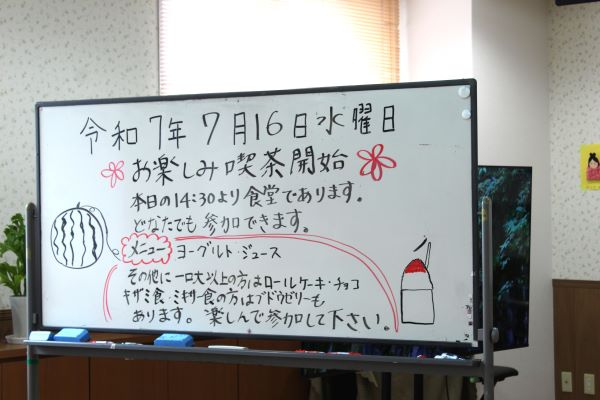 令和7年7月16日水曜日
お楽しみ喫茶開始
本日の14:30より食堂であります。
どなたでも参加できます。
メニュー ヨーグルト・ジュース
その他に一口大以上の方はロールケーキ・チョコ
キザミ食・ミキサー食の方はブドウゼリーも
あります。楽しんで参加して下さい。